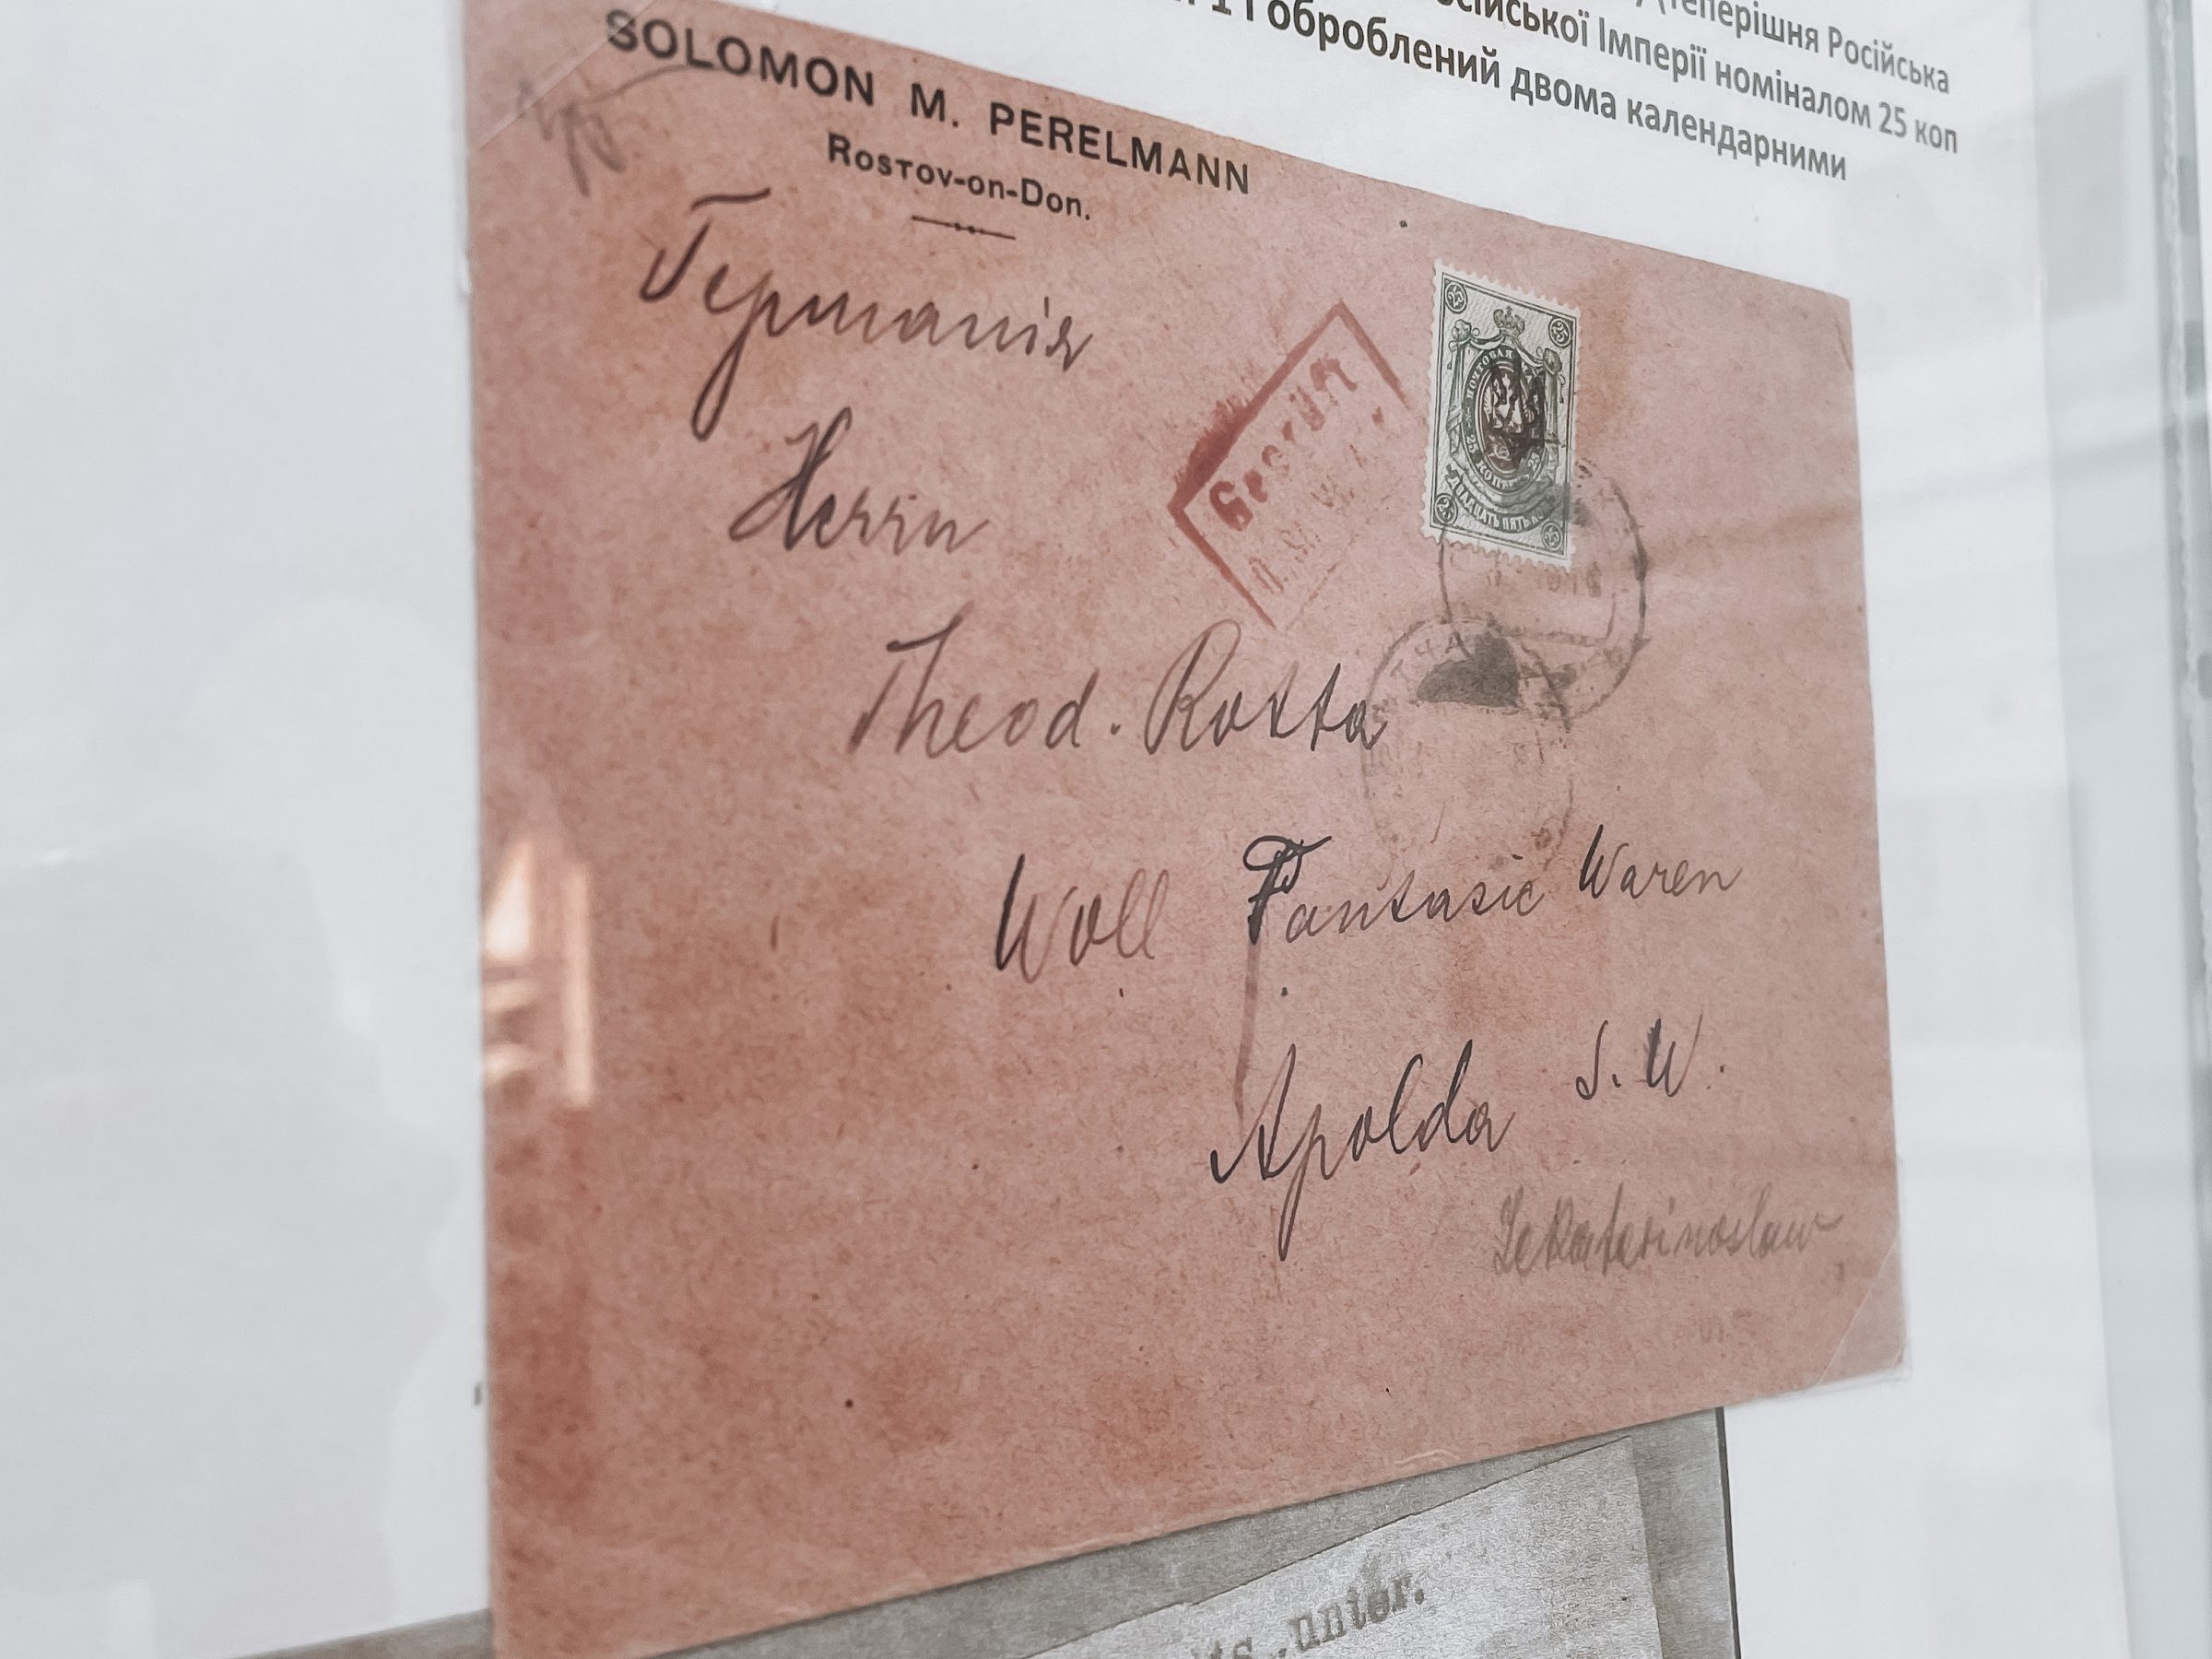 (теперішня Російська
Імперії номіналом 25 коп
1 і оброблений двома календарними
SOLOMON M. PERELMANN
Rostov-on-Don.
Германія
Herrn
Theod. Rotta
Woll Fantasie Waren
Apolda S. W.
Jekaterinoslaw
Geprüft
25
25
ПОЧТОВАЯ
25
25
unter.